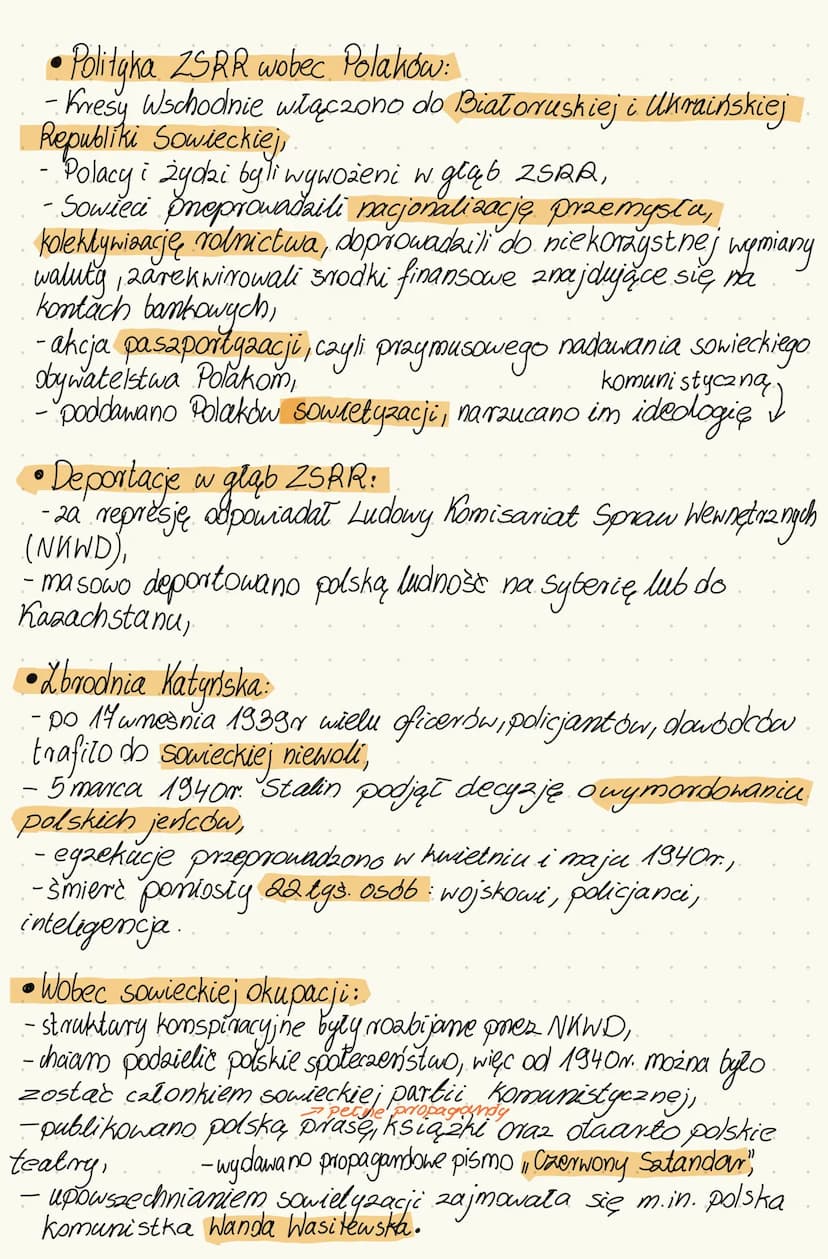 • Polityka ZSRR wobec Polaków:
- Kresy Wschodnie włączono do Białoruskiej i Ukraińskiej
Republiki Sowieckiej,
- Polacy i żydzi byli wywożeni w głąb ZSRR,
- Sowieci przeprowadzili nacjonalizację przemysłu,
kolektywizację rolnictwa, doprowadzili do niekorzystnej wymiany
waluty, zarekwirowali środki finansowe znajdujące się na
kontach bankowych,
- akcja paszportyzacji, czyli przymusowego nadawania sowieckiego
obywatelstwa Polakom,
komunistyczną
- poddawano Polaków sowietyzacji, narzucano im ideologię ↓
• Deportacje w głąb ZSRR:
- za represję odpowiadał Ludowy Komisariat Spraw Wewnętrznych
(NKWD),
- masowo deportowano polską ludność na Syberię lub do
Kazachstanu,
• Zbrodnia Katyńska:
- po 17 września 1939r wielu oficerów, policjantów, dowódców
trafiło do sowieckiej niewoli,
- 5 marca 1940r. Stalin podjął decyzję o wymordowaniu
polskich jeńców,
- egzekucje przeprowadzono w kwietniu i maju 1940r.,
- śmierć poniosły 22 tys. osób : wojskowi, policjanci,
inteligencja.
• Wobec sowieckiej okupacji:
- struktury konspiracyjne były rozbijane przez NKWD,
- chciano podzielić polskie społeczeństwo, więc od 1940r. można było
zostać członkiem sowieckiej partii komunistycznej,
→ pełne propagandy
- publikowano polską prasę, książki oraz otwarto polskie
teatry, - wydawano propagandowe pismo „Czerwony Sztandar",
- upowszechnianiem sowietyzacji zajmowała się m.in. polska
komunistka Wanda Wasilewska.